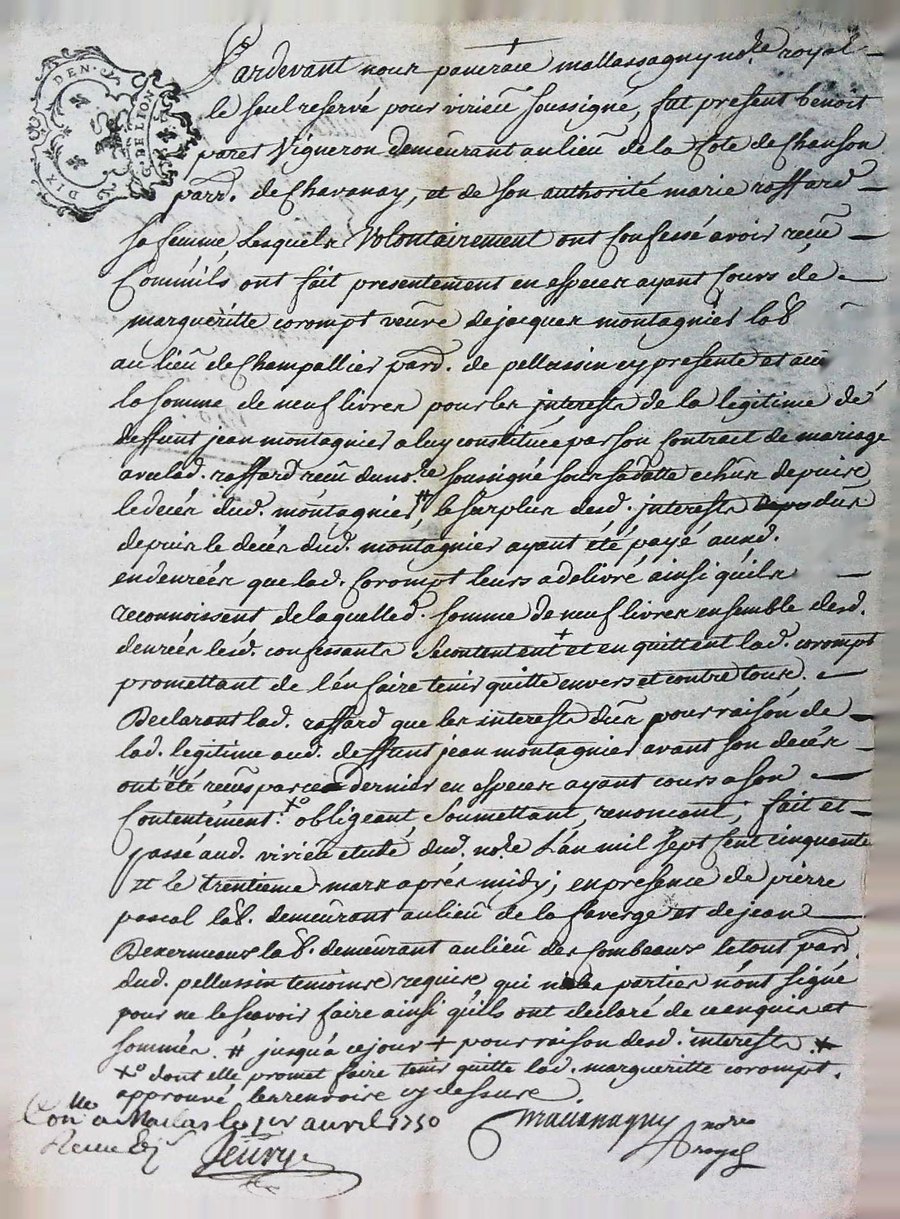 DIX DEN.
G. DE LION
Pardevant nous pancrace mallassagny no.re royal
le seul reservé pour virieu soussigné, fut present benoit
paret Vigneron demeurant au lieu de la Cote de Chanson
parr. de Chavanay, et de son authorité marie raffard
sa femme, lesquels Volontairement ont Confessé avois reçeu
Comm'ils ont fait presentement en especes ayant Cours de
margueritte corompt veuve de jacques montagnier lab.
au lieu de Champallier parr. de pellussin cy presente et acc
la somme de neuf livres pour les interests de la legitime de
deffunt jean montagnier a luy constituée par son Contract de mariage
avec lad. raffard reçeu dud no.re soussigné sous sa datte echeus depuis
le decés dud. montagnier # le surplus desd. interests dus
depuis le decés dud. montagnier ayant été payé aud.
en denrées que lad. Corompt leurs a delivré ainsi quils
reconnoissent de laquelle d. somme de neuf livres ensemble desd.
denrées lesd. confessants se contentent + et en quittent lad. corompt
promettant de l'en faire tenir quitte envers et contre tous.
Declarant lad. raffard que les interests dus pour raison de
lad. legitime aud. deffunt jean montagnier avant son decés
ont été reçus par ce dernier en especes ayant cours a son
Contentement. +o obligeant, soumettant, renoncant, fait et
passé aud. virieu etude dud. no.re L'an mil sept cent cinquante
et le trentieme mars aprés midy; en presence de pierre
pascal lab. demeurant au lieu de la faverge et de jean
lab. demeurant au lieu des Combeaux le tout parr.
dud. pellussin temoins requis qui ni les parties n'ont signé
pour ne le sçavoir faire ainsi quils ont declaré de ce enquis et
sommés. # jusqu'a ce jour + pour raison desd. interests.
+o dont elle promet faire tenir quitte lad. margueritte corompt.
approuvé les renvois cy dessus.
Con.lle a Maclas le 1er avril 1750
mallassagny no.re
royal
Fleury